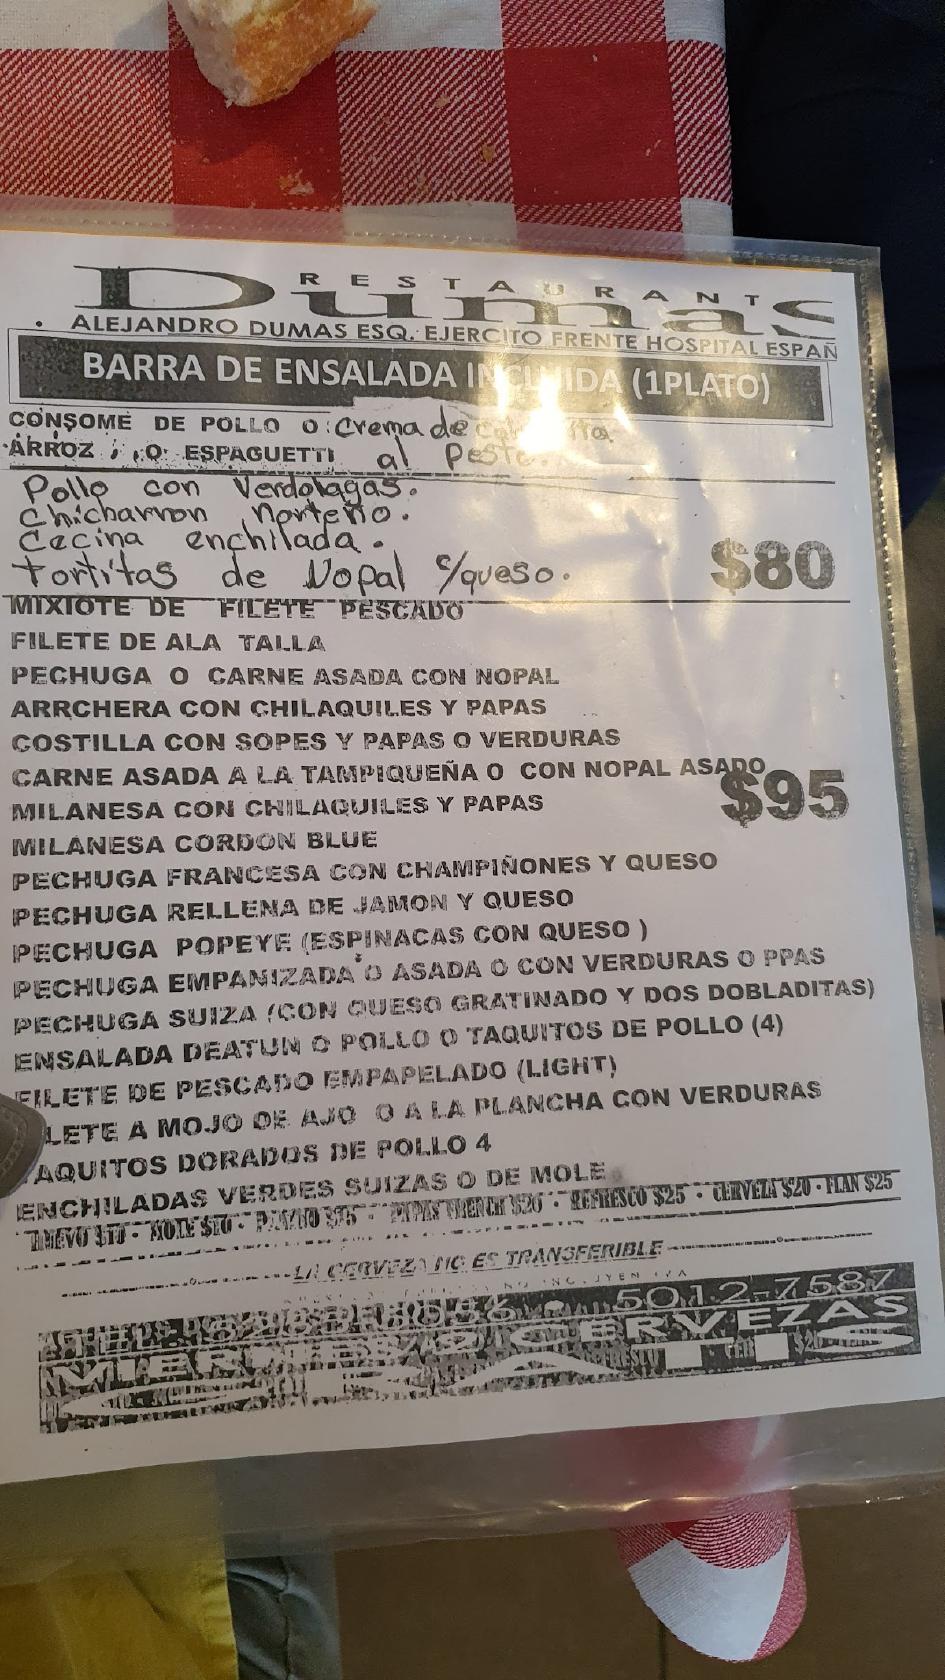 RESTAURANT
Dumas
ALEJANDRO DUMAS ESQ. EJERCITO FRENTE HOSPITAL ESPAÑ
BARRA DE ENSALADA INCLUIDA (1PLATO)
CONSOME DE POLLO O Crema de
ARROZ O ESPAGUETTI al Peste.
Pollo con Verdolagas.
Chicharron Norteño.
Cecina enchilada.
Tortitas de Nopal c/queso.
$80
MIXIOTE DE FILETE PESCADO
FILETE DE ALA TALLA
PECHUGA O CARNE ASADA CON NOPAL
ARRCHERA CON CHILAQUILES Y PAPAS
COSTILLA CON SOPES Y PAPAS O VERDURAS
CARNE ASADA A LA TAMPIQUEÑA O CON NOPAL ASADO
$95
MILANESA CON CHILAQUILES Y PAPAS
MILANESA CORDON BLUE
PECHUGA FRANCESA CON CHAMPIÑONES Y QUESO
PECHUGA RELLENA DE JAMON Y QUESO
PECHUGA POPEYE (ESPINACAS CON QUESO )
PECHUGA EMPANIZADA O ASADA O CON VERDURAS O PPAS
PECHUGA SUIZA (CON QUESO GRATINADO Y DOS DOBLADITAS)
ENSALADA DEATUN O POLLO O TAQUITOS DE POLLO (4)
FILETE DE PESCADO EMPAPELADO (LIGHT)
LETE A MOJO DE AJO O A LA PLANCHA CON VERDURAS
AQUITOS DORADOS DE POLLO 4
ENCHILADAS VERDES SUIZAS O DE MOLE
HUEVO $10 - MOLE $10 - PAPAS FRENCH $26 - REFRESCO $25 - CERVEZA $20 - FLAN $25
LA CERVEZA NO ES TRANSFERIBLE
5012-7587
MIERCOLES 2 CERVEZAS